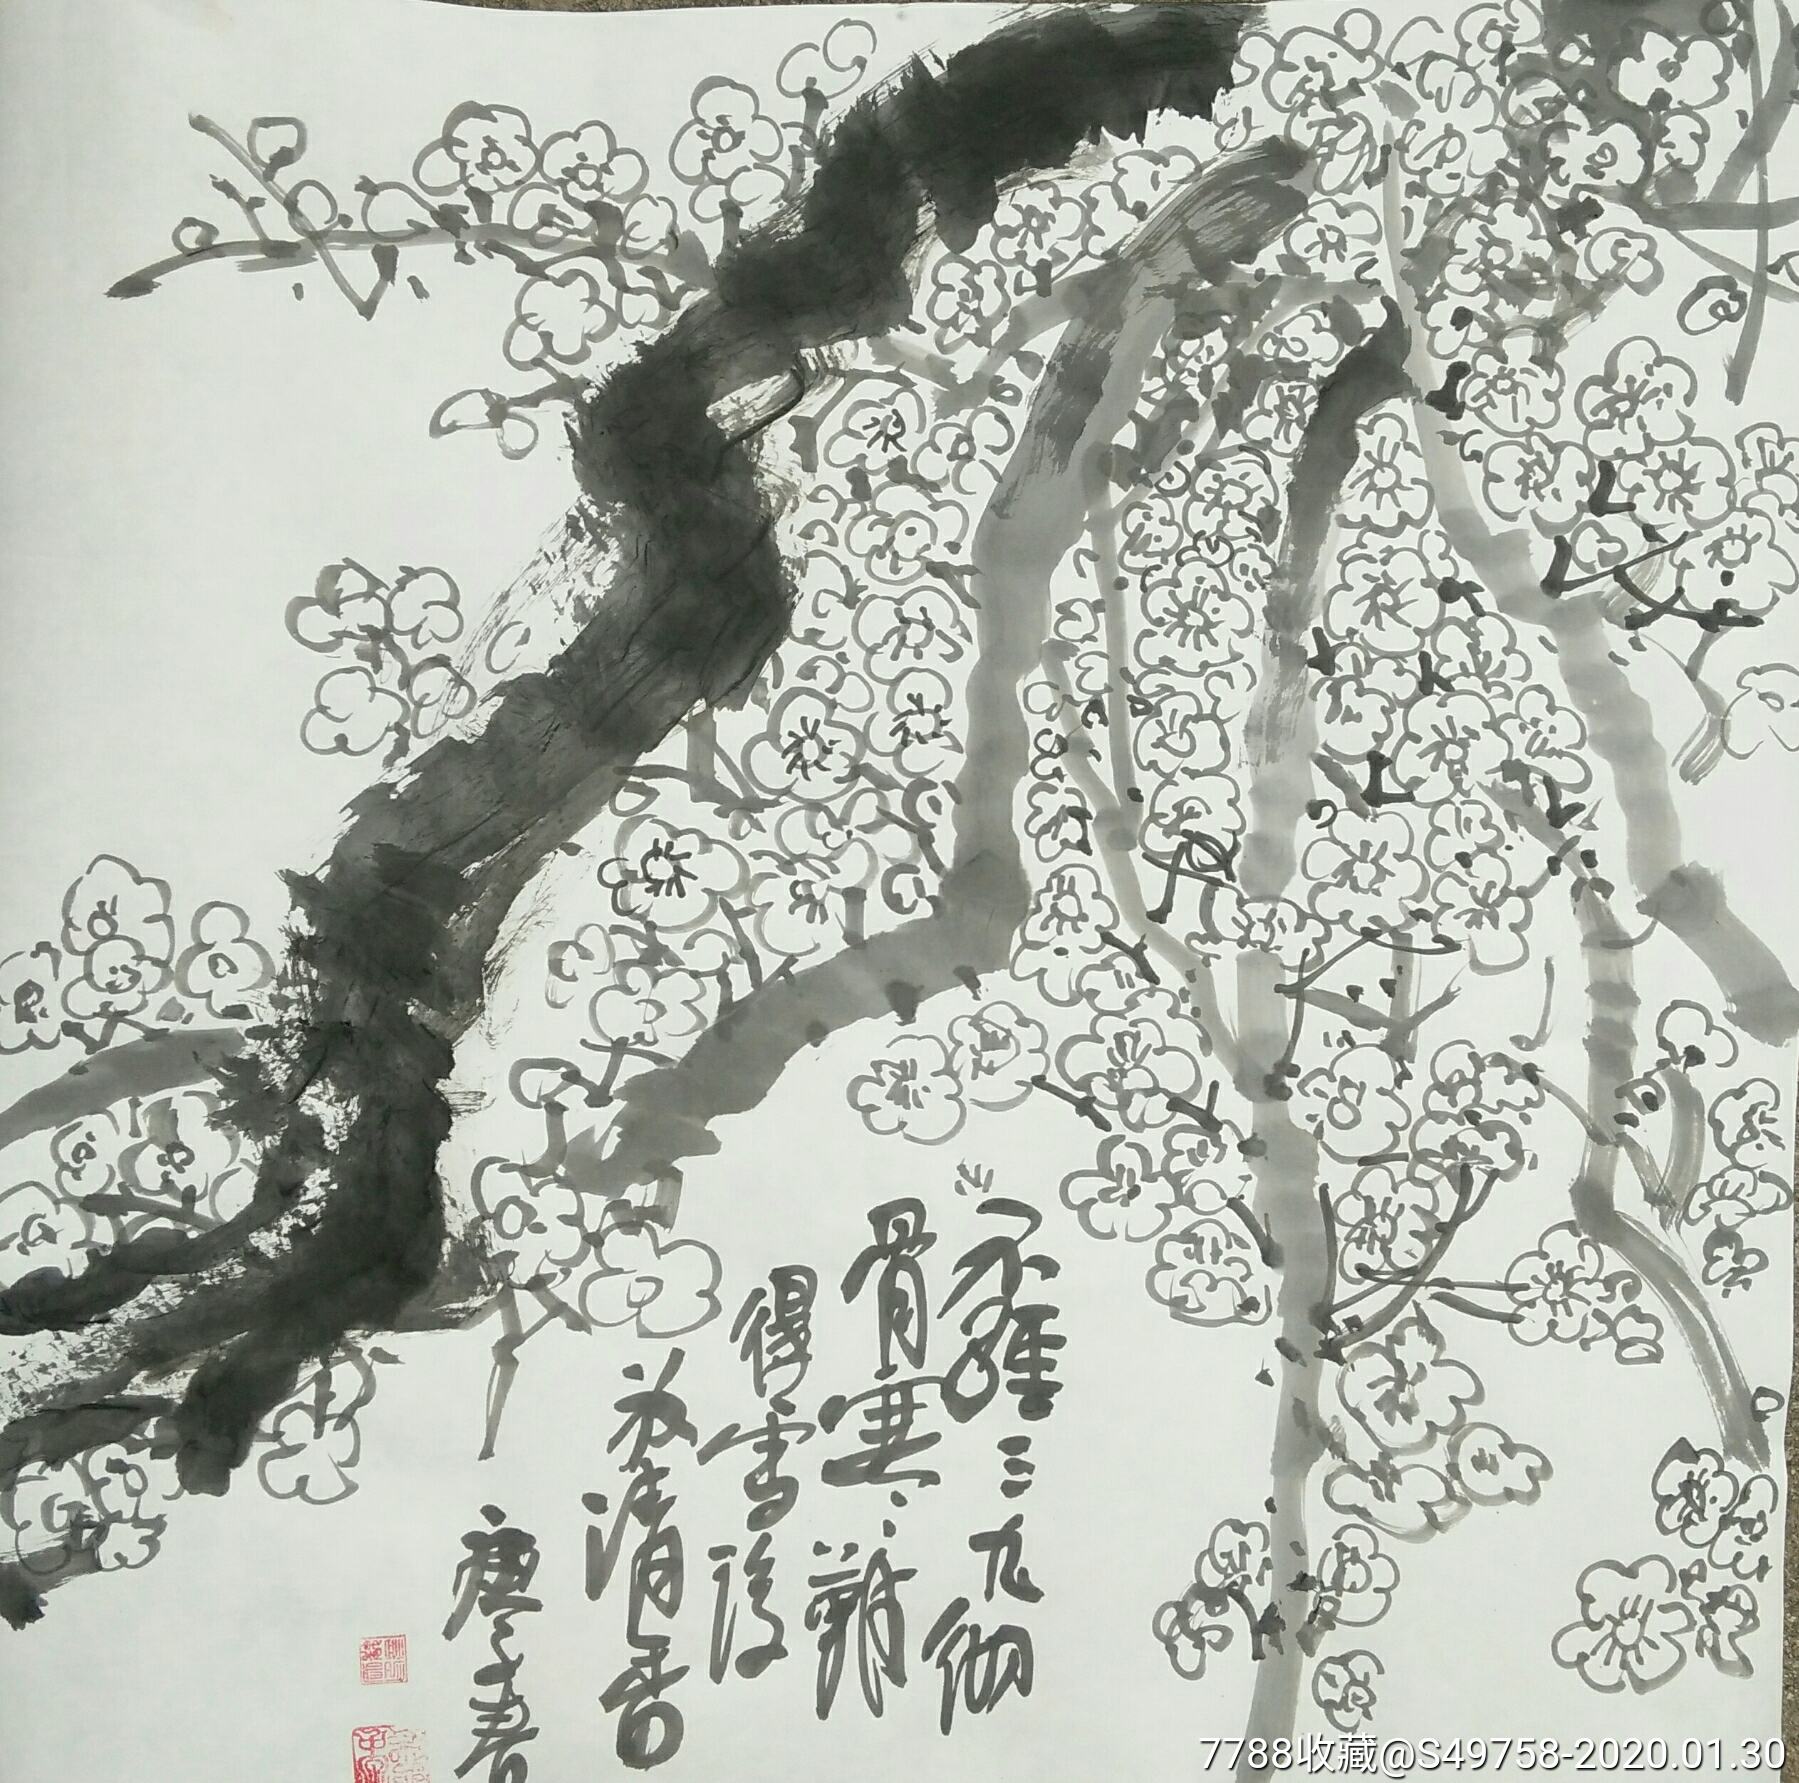 不經三九彻
骨寒难
得雪後
放清香
7788收藏@S49758-2020.01.30